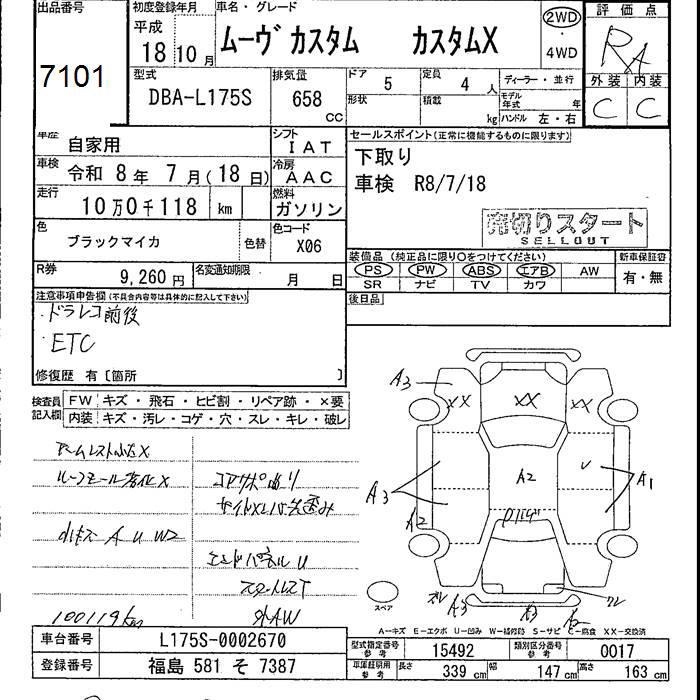 出品番号
7101
初度登録年月
平成
18 10 月
車名・グレード
ムーヴ カスタム カスタムX
2WD
・
4WD
評価点
RA
外装 内装
C C
型式
DBA-L175S
排気量
658
CC
ドア 5
形状
定員 4 人
積載 kg
ディーラー・並行
モデル年式 年
ハンドル 左・右
車歴 自家用
シフト
IAT
車検 令和 8 年 7 月(18 日)
冷房
AAC
走行
10 万0 千118 km
燃料
ガソリン
色
ブラックマイカ
色替
色コード
X06
R券
9,260 円
名変通知期限
月 日
セールスポイント(正常に機能するものに限ります)
下取り
車検 R8/7/18
売切りスタート
SELLOUT
装備品(純正品に限り○をつけてください)
新車保証書
PS PW ABS エアB AW
SR ナビ TV カワ
有・無
後日品
注意事項申告欄(不具合内容等は具体的に記入して下さい)
・ドラレコ前後
・ETC
修復歴 有〔箇所 〕
検査員
記入欄
FW キズ・飛石・ヒビ割・リペア跡・×要
内装 キズ・汚レ・コゲ・穴・スレ・キレ・破レ
ルーフモール劣化X
コアサポ曲り
小キズ A U W2
エンドパネル U
100119km
外AW
A3
XX XX XX
A2
U
A1
A3
A2
スペア
A3 A3 A2
A-キズ E-エクボ U-凹み W-補修跡 S-サビ C-腐食 XX-交換済
車台番号 L175S-0002670
登録番号 福島 581 そ 7387
型式指定番号
参考
15492
類別区分番号
参考
0017
車庫証明用
参考
長さ 339 cm 幅 147 cm 高さ 163 cm